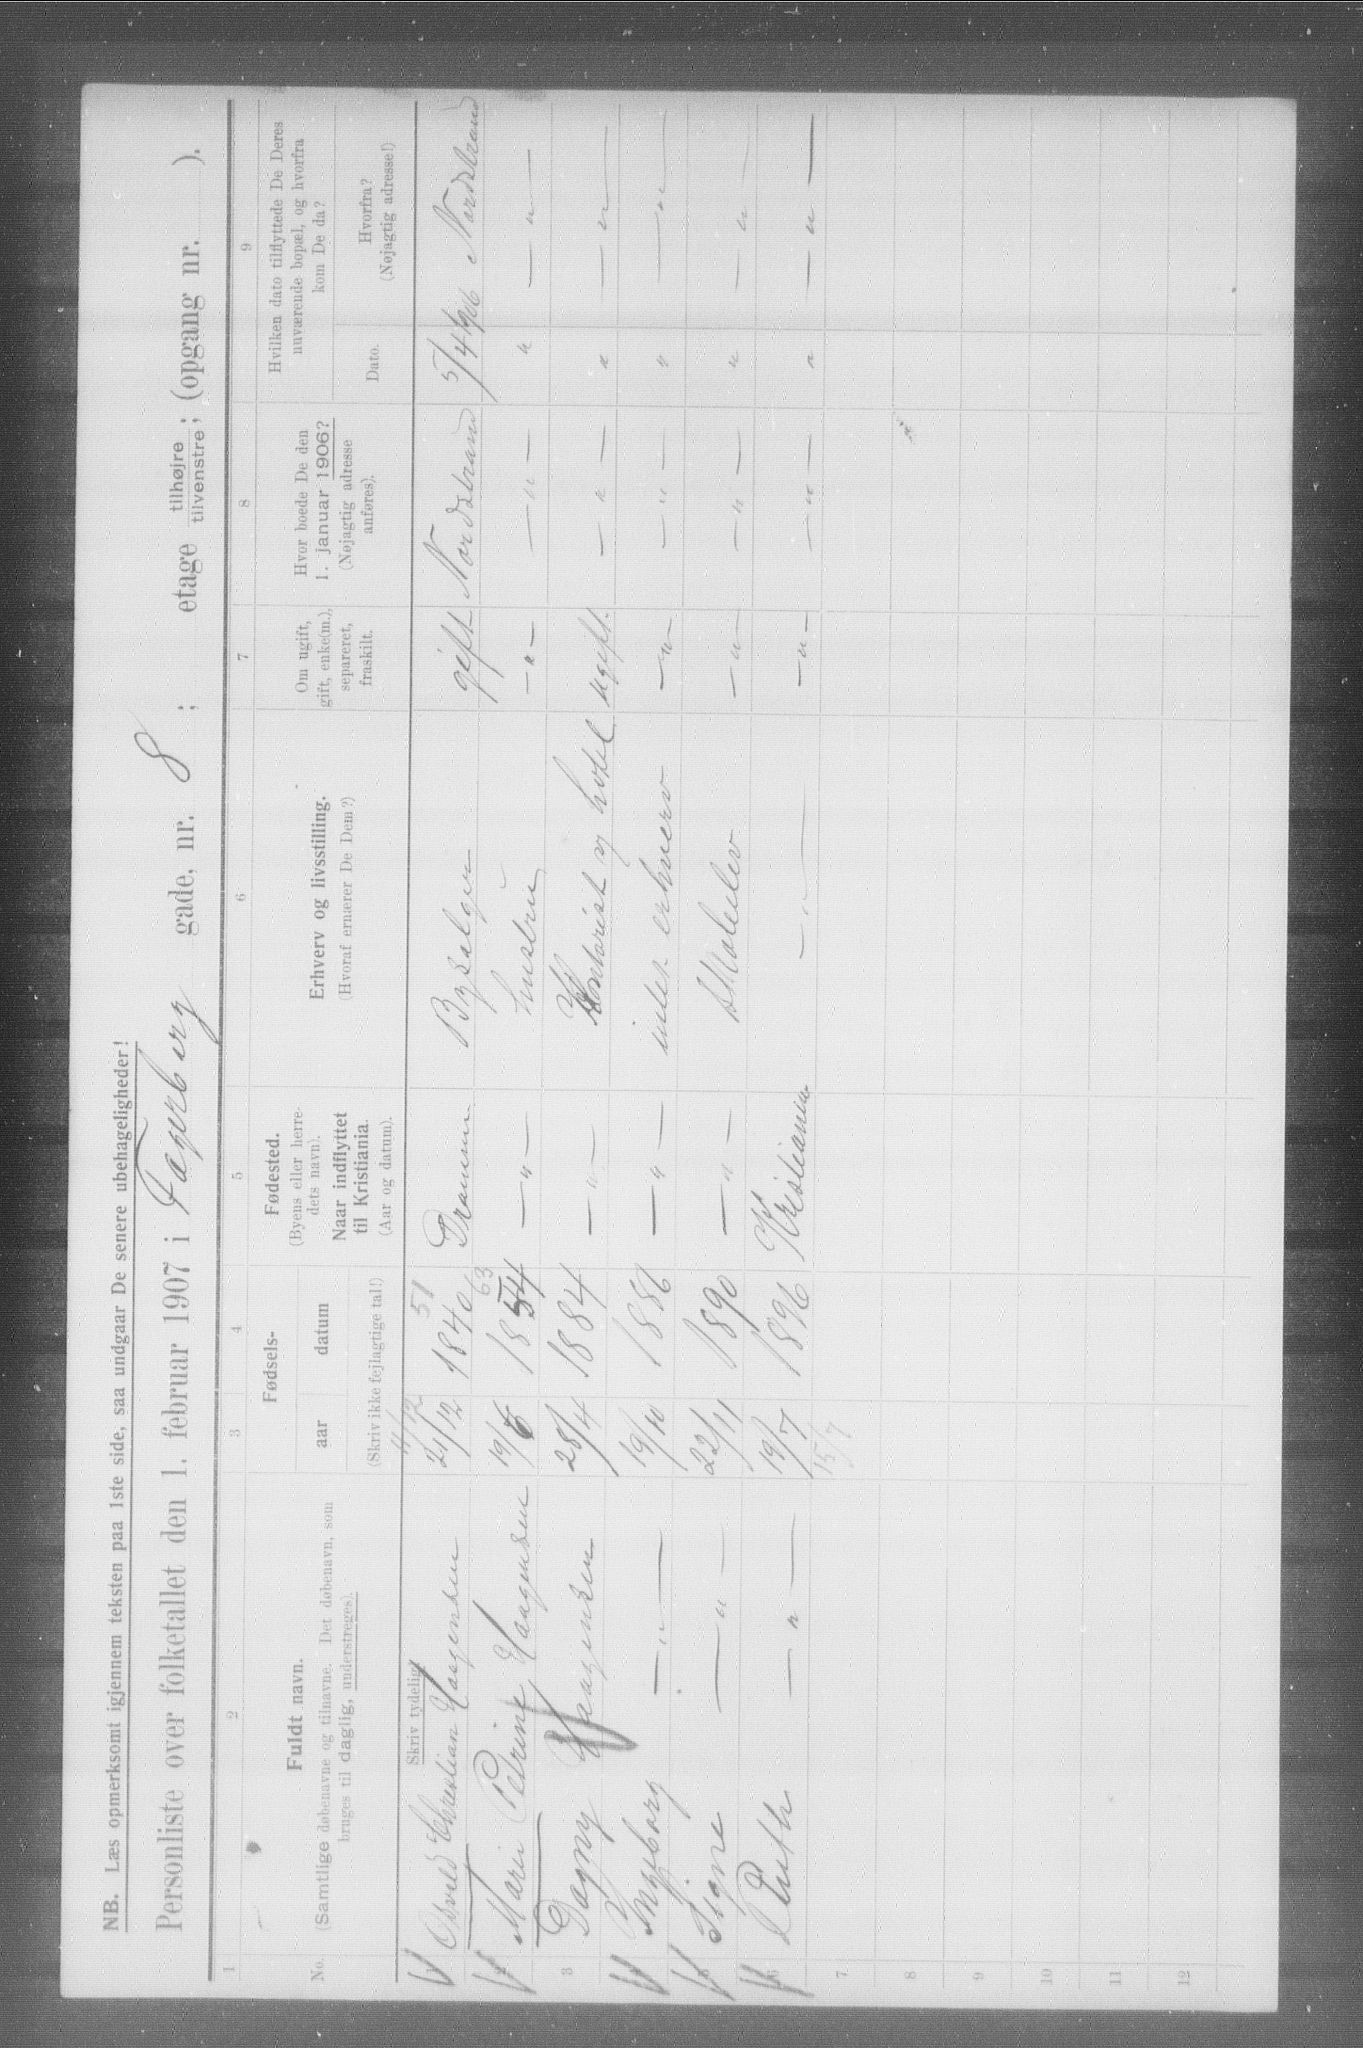 NB. Læs opmerksomt igjennem teksten paa 1ste side, saa undgaar De senere ubehageligheder!
Personliste over folketallet den 1. februar 1907 i Fagerborg gade, nr. 8 ; etage tilhøjre tilvenstre; (opgang nr. ).
1 2 3 4 5 6 7 8 9
No.
Fuldt navn.
(Samtlige døbenavne og tilnavne. Det døbenavn, som
bruges til daglig, understreges).
Skriv tydelig!
Fødsels-
aar datum
(Skriv ikke fejlagtige tal!)
Fødested.
(Byens eller herre-
dets navn).
Naar indflyttet
til Kristiania.
(Aar og datum).
Erhverv og livsstilling.
(Hvoraf ernærer De Dem?)
Om ugift,
gift, enke(m.),
separeret,
fraskilt.
Hvor boede De den
1. januar 1906?
(Nøjagtig adresse
anføres).
Hvilken dato tilflyttede De Deres
nuværende bopæl, og hvorfra
kom De da?
Dato.
Hvorfra?
(Nøjagtig adresse!)
11/12 51
1 Christian Haagensen 21/12 1840 Dramm. gift Nordstrand 5/4 06 Nordstrand
63
2 Marie Petrine Haagensen 19/6 1854 — " — hustru — " — — " — " — " —
3 Dagny Haagensen 28/4 1884 — " — Kontorist og hotel ugift. — " — " — " —
4 Ingeborg — " — 19/10 1886 — " — intet erhverv — " — — " — " — " —
5 Signe — " — 22/11 1890 — " — Skoleelev — " — — " — " — " —
6 Ruth — " — 19/7 1896 Kristiania — " — — " — — " — " — " —
15/7
7
8
9
10
11
12